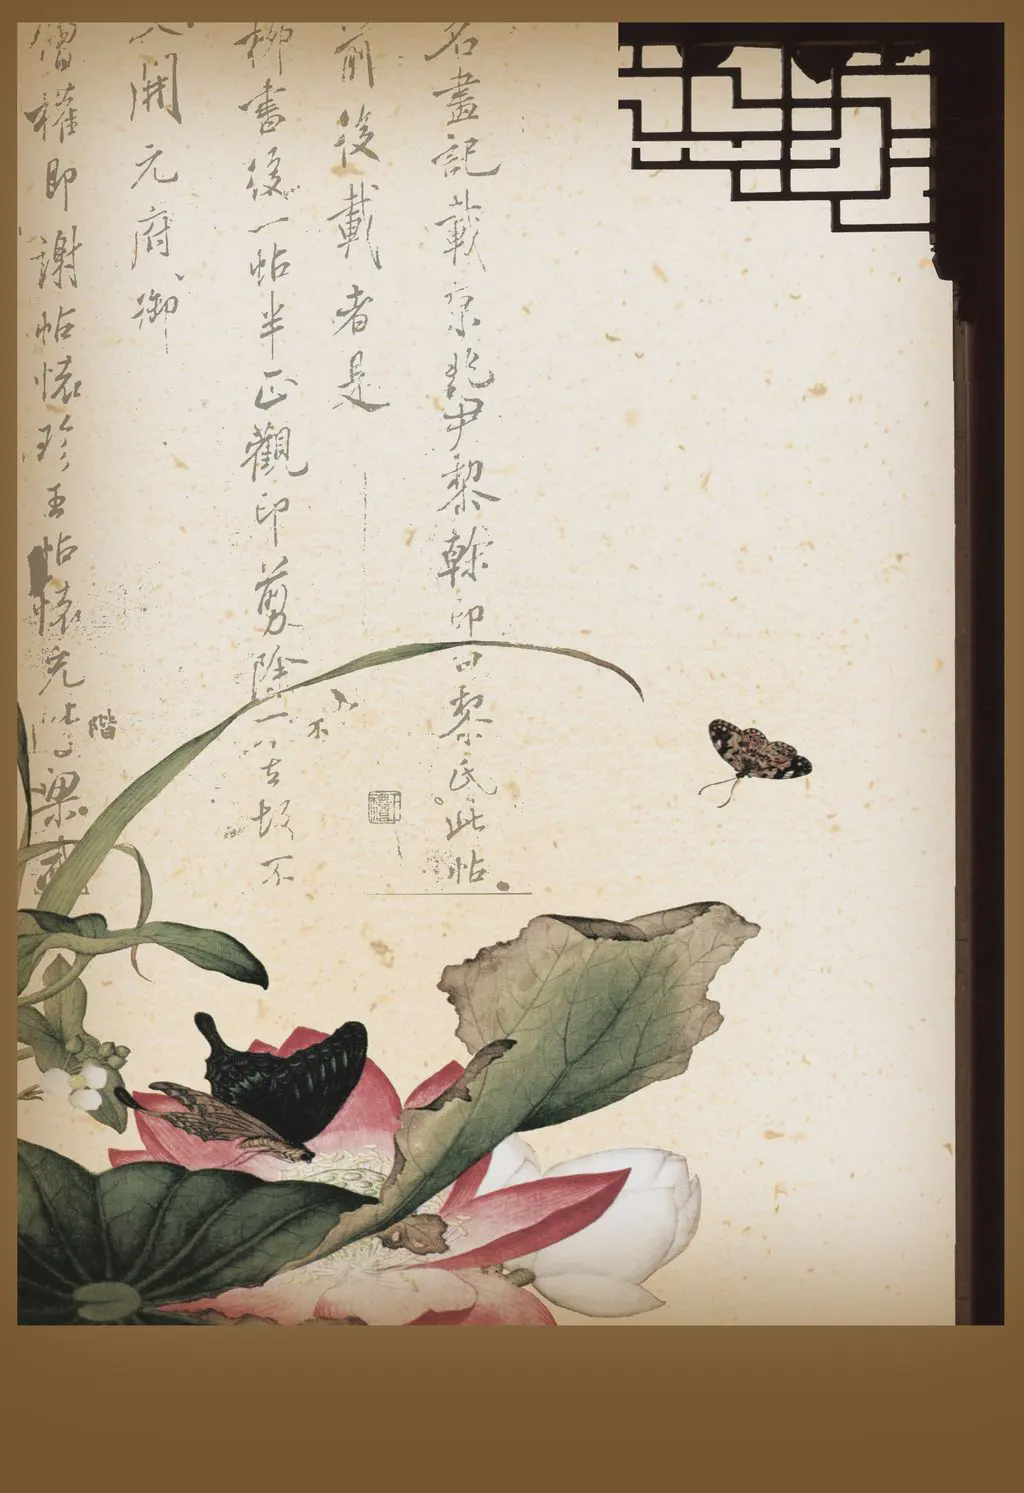 名畫記載京兆尹黎幹印曰黎氏此帖
前後載者是
柳書後一帖半正觀印剪除一不
去故不
八開元府御
僧權即謝帖懷珍王帖懷充
階
梁